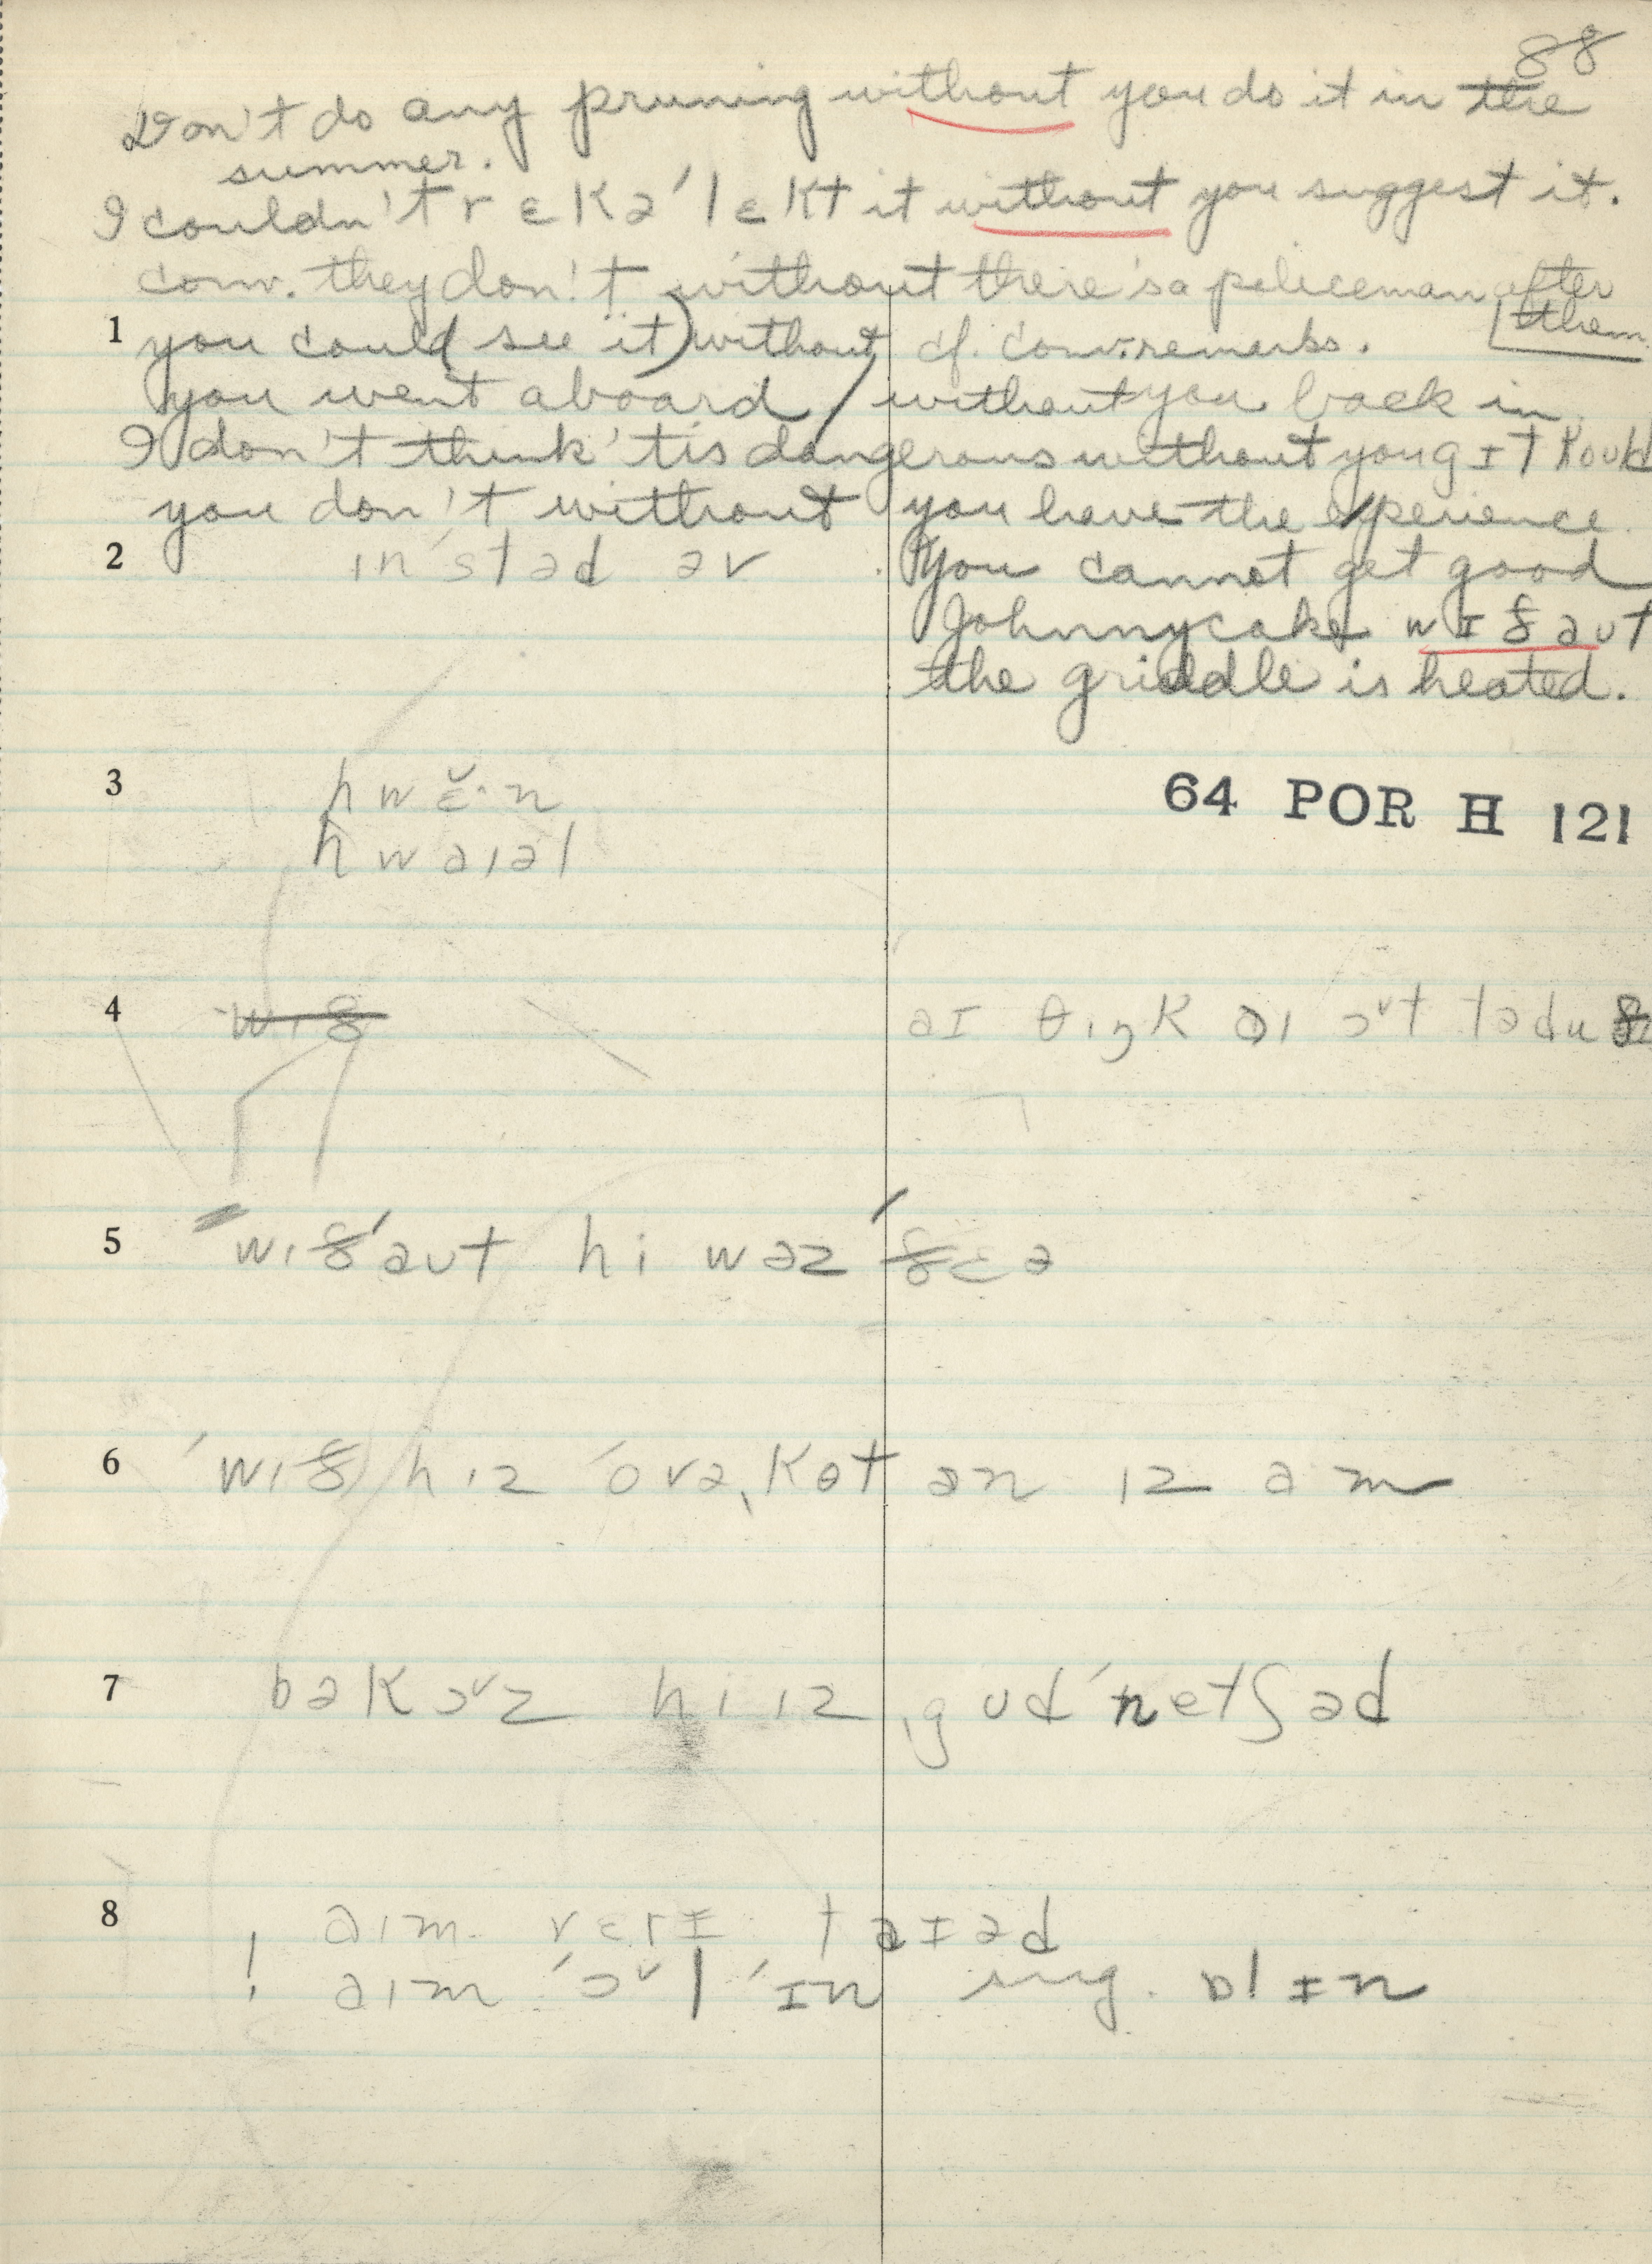 88
Don't do any pruning without you do it in the
summer.
I couldn't rɛkə'lɛkt it without you suggest it.
conv. they don't without there's a policeman after
them.
1 you could (see it) without cf. conv. remarks.
you went aboard / without you back in
I don't think 'tis dangerous without you gɪt kould
you don't without you have the experience
2 in'stəd əv You cannot get good
Johnnycake wɪðaut
the griddle is heated.
3 hwɛ̆·n
64 POR H 121
hwaiəl
4 wið aɪ θiŋk ai ɔᵛt tədu
5 wið'aut hi wəz 'ðɛə
6 'wið hiz 'ovə,kot an iz am
7 bəkɔᵛz hi iz ,gud 'netʃəd
8 aim vɛrɪ taɪəd
! aim 'ɔᵛl 'ɪn sug. ɒlɪn